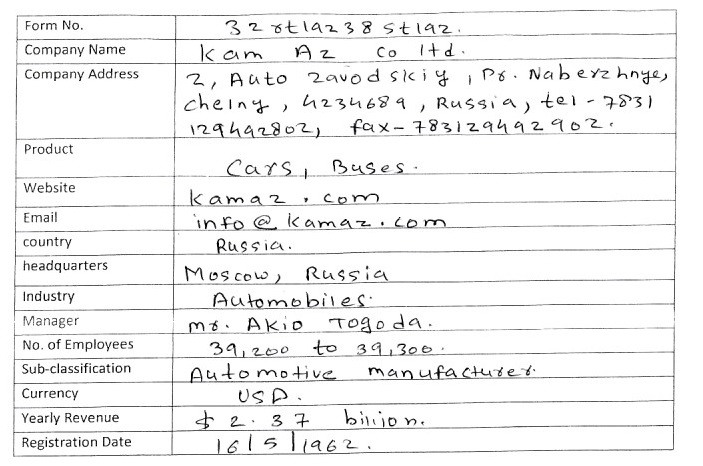 Form No. 32rtlaz38stlaz.
Company Name Kam Az co ltd.
Company Address 2, Auto zavodskiy, Pr. Naberzhnye,
chelny, 4234689, Russia, tel-7831
129492802, fax-783129492902.
Product Cars, Buses.
Website kamaz.com
Email info@kamaz.com
country Russia.
headquarters Moscow, Russia
Industry Automobiles.
Manager mr. Akio Togoda.
No. of Employees 39,200 to 39,300.
Sub-classification Automotive manufacturer.
Currency USD.
Yearly Revenue $ 2.37 billion.
Registration Date 16/5/1962.